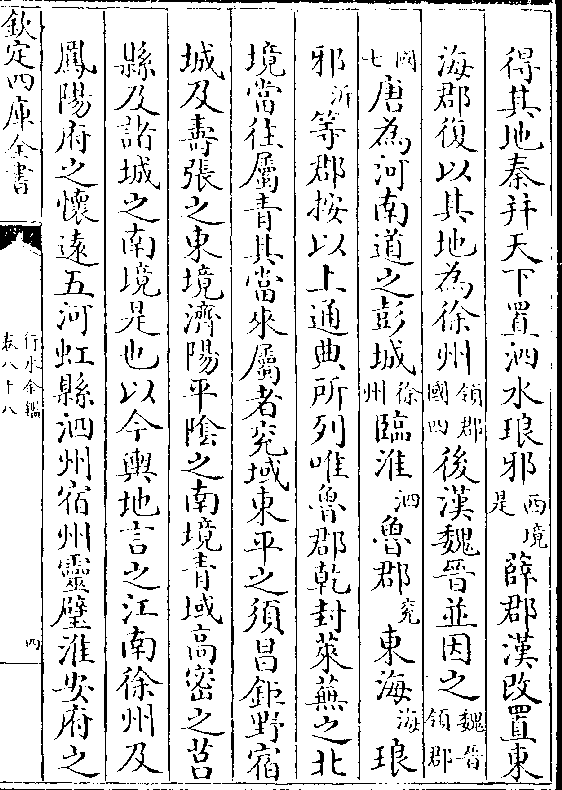 得其地秦并天下置泗水琅邪西境是薛郡漢改置東
海郡復以其地為徐州領郡國四後漢魏晉並因之魏晉領郡
國七唐為河南道之彭城徐州臨淮泗魯郡兖東海海琅
邪沂等郡按以上通典所列唯魯郡乾封萊蕪之北
境當往屬青其當來屬者兖域東平之須昌鉅野宿
城及壽張之東境濟陽平陰之南境青域高密之莒
縣及諸城之南境是也以今輿地言之江南徐州及
鳳陽府之懷遠五河虹縣泗州宿州靈璧淮安府之
欽定四庫全書
行水金鑑
卷八十八
四